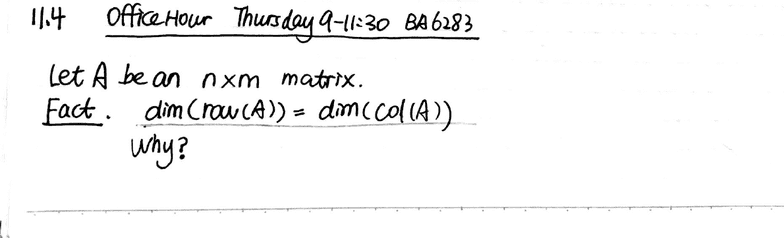 11.4 Office Hour Thursday 9-11:30 BA6283
Let A be an n×m matrix.
Fact. dim(row(A)) = dim(col(A))
Why?